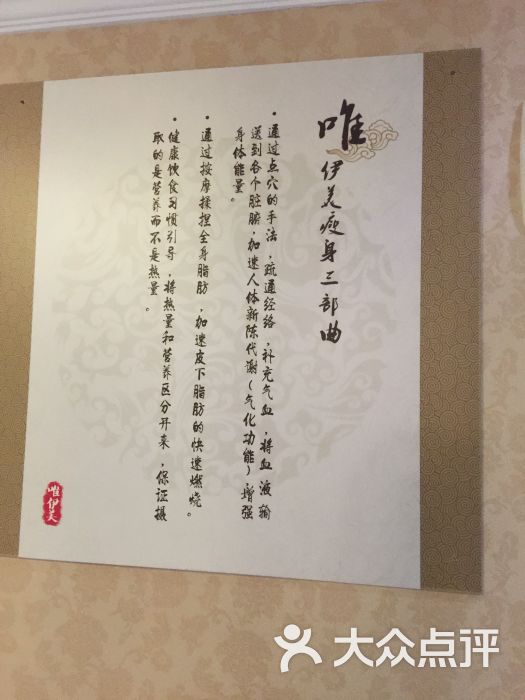 唯伊美瘦身三部曲
• 通过点穴的手法，疏通经络，补充气血，将血液输
送到各个脏腑，加速人体新陈代谢（气化功能）增强
身体能量。
• 通过按摩揉捏全身脂肪，加速皮下脂肪的快速燃烧。
• 健康饮食习惯引导，将热量和营养区分开来，保证摄
取的是营养而不是热量。
唯伊美
大众点评